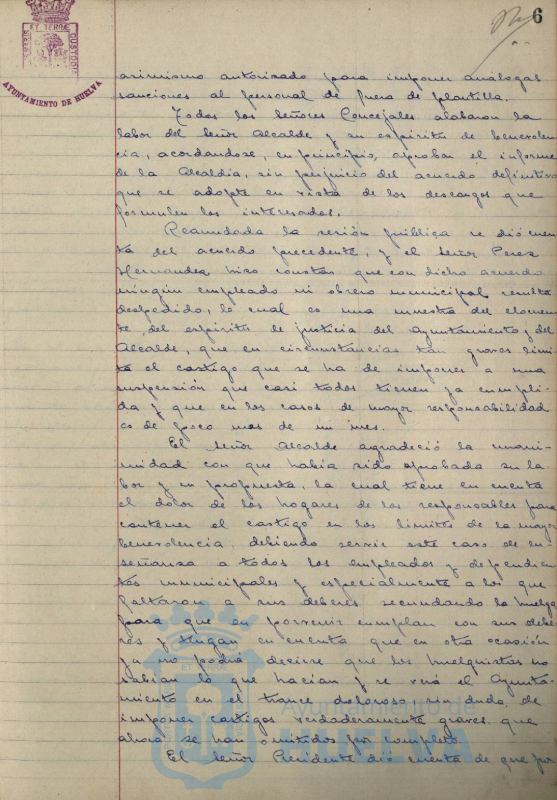 6
PORTUS MARIS ET TERRÆ CUSTODIA
AYUNTAMIENTO DE HUELVA
asimismo autorizado para imponer análogas
sanciones al personal de fuera de plantilla.
Todos los Señores Concejales alabaron la
labor del Señor Alcalde y su espíritu de benevolen
cia, acordandose, en principio, aprobar el informe
de la Alcaldía, sin perjuicio del acuerdo definitivo
que se adopte en vista de los descargos que
formulen los interesados.
Reanudada la sesión pública se dió cuen
ta del acuerdo precedente, y el Señor Perez
Hernandez hizo constar que con dicho acuerdo
ningún empleado ni obrero municipal resulta
despedido, lo cual es una muestra del elocuen
te, del espíritu de justicia del Ayuntamiento y del
Alcalde, que en circunstancias tan graves limi
ta el castigo que se ha de imponer a una
suspensión que casi todos tienen ya cumpli
da y que en los casos de mayor responsabilidad
es de poco mas de un mes.
El Señor Alcalde agradeció la unani-
midad con que había sido aprobada su la
bor y su propuesta, la cual tiene en cuenta
el dolor de los hogares de los responsables para
contener el castigo en los límites de la mayor
benevolencia, debiendo servir este caso de en
señanza a todos los empleados y dependien
tes municipales y especialmente a los que
faltaron a sus deberes secundando la huelga
para que en porvenir cumplan con sus debe
res y tengan en cuenta que en otra ocasión
ya no podrá decirse que los huelguistas no
sabían lo que hacían y se verá el Ayunta-
miento en el trance doloroso, sin duda, de
imponer castigos verdaderamente graves, que
ahora se han omitidos por completo.
El Señor Presidente dió cuenta de que por
Ayuntamiento de
HUELVA